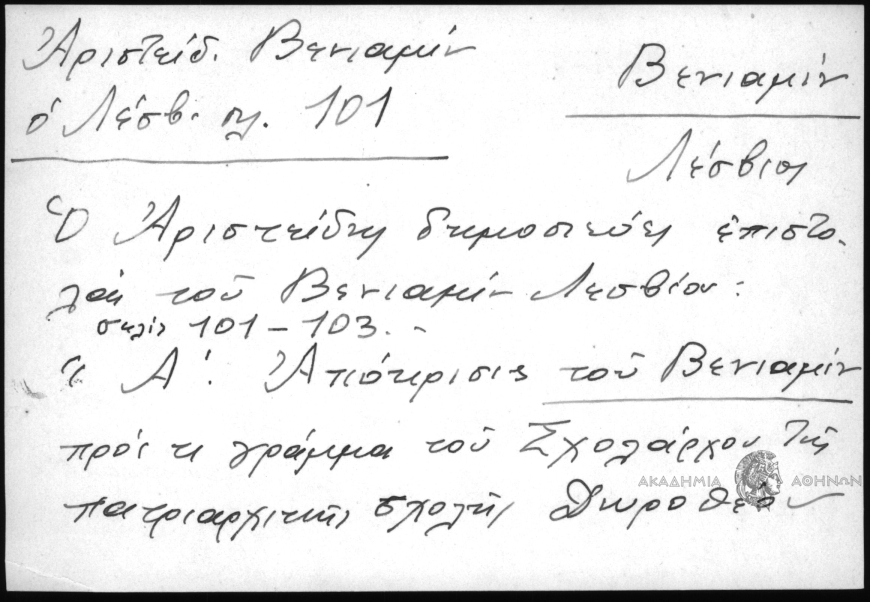 Ἀριστείδ. Βενιαμίν
ὁ Λέσβ. σελ. 101
Βενιαμίν
Λέσβιος
Ὁ Ἀριστείδης δημοσιεύει ἐπιστο-
λὰς τοῦ Βενιαμίν Λεσβίου:
σελὶς 101-103.-
Α΄. Ἀπόκρισις τοῦ Βενιαμίν
πρός τι γράμμα τοῦ Σχολάρχου τῆς
πατριαρχικῆς σχολῆς Δωροθέου
ΑΚΑΔΗΜΙΑ ΑΘΗΝΩΝ